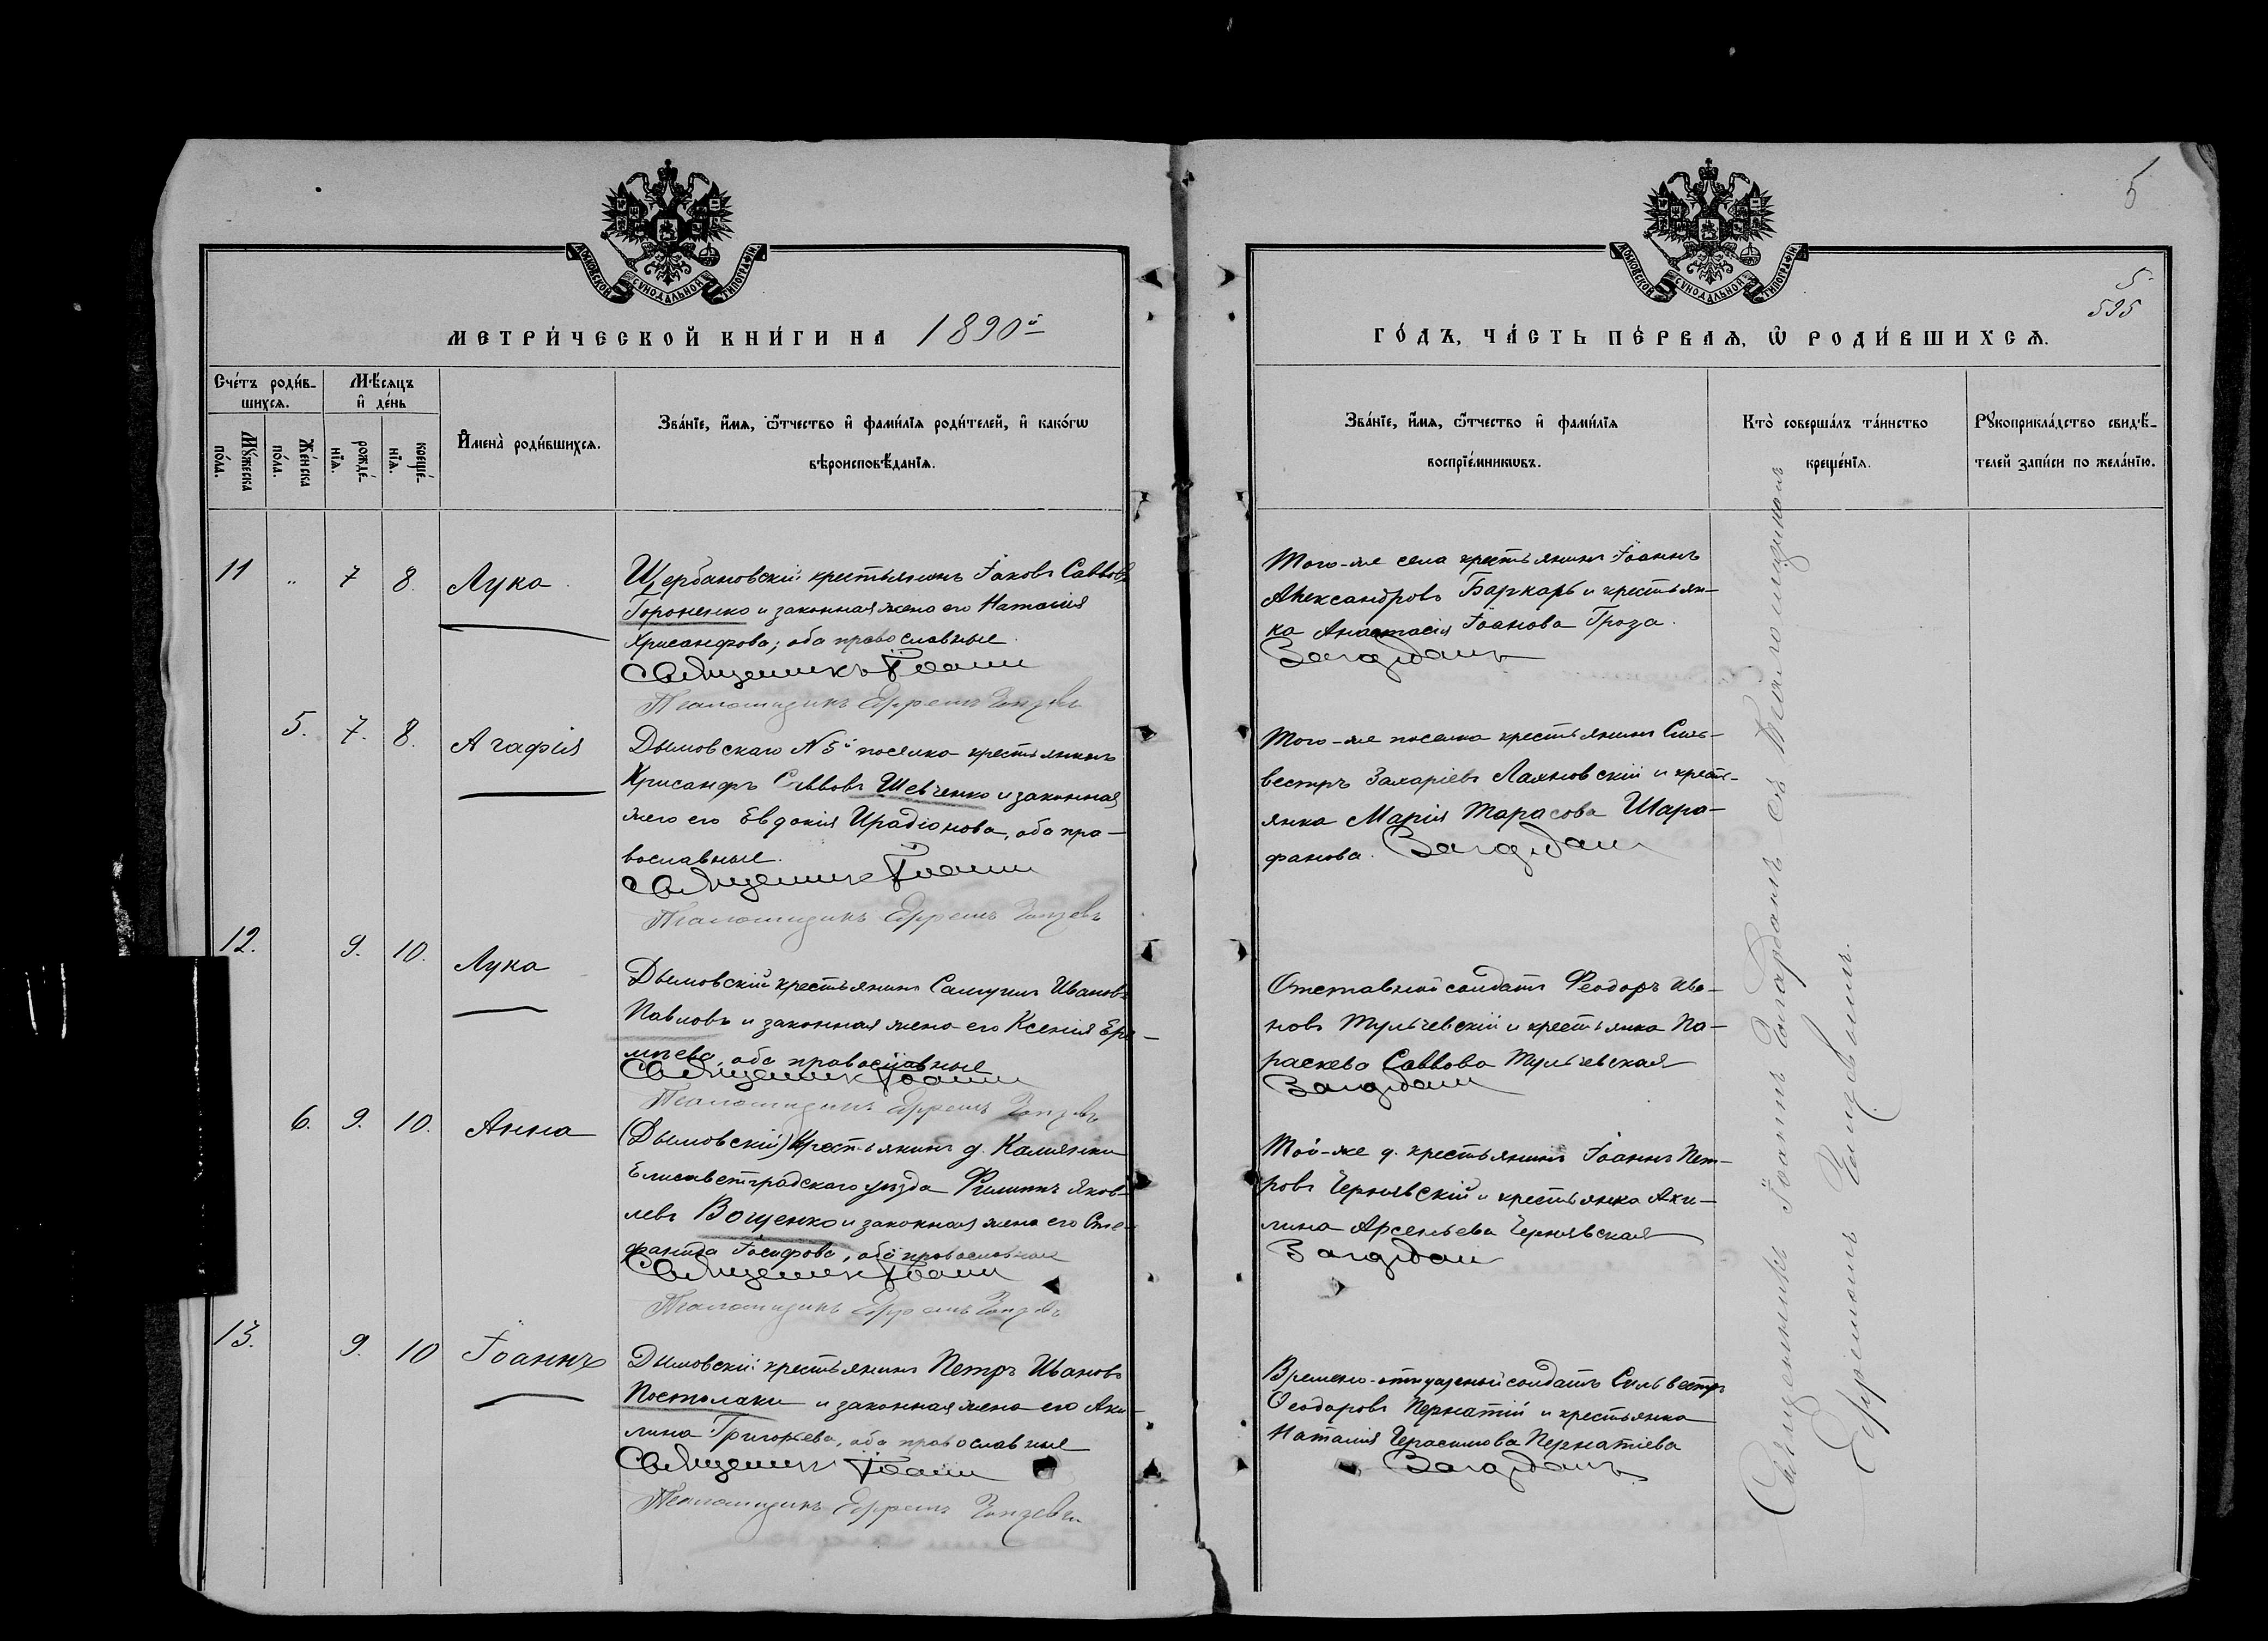 МОСКОВСКОЙ СУНОДАЛЬНОЙ ТИПОГРАФІИ
МЕТРИ́ЧЕСКОЙ КНИ́ГИ НА 1890й
Сче́тъ роди́в-
шихсѧ.
Мѣ́сѧцъ
и҆ де́нь
Мꙋ́жеска
по́ла.
Же́нска
по́ла.
рожде́-
нїѧ.
креще́-
нїѧ.
И҆мена̀ роди́вшихсѧ.
Зва́нїе, и҆́мѧ, ѻ҆́тчество и҆ фами́лїѧ роди́телей, и҆ како́гѡ
вѣроисповѣ́данїѧ.
11 " 7 8. Лука
Щербановскій крестьянинъ Іаковъ Саввовъ
Гороненко и законная жена его Наталія
Хрисанфова; оба православные.
Священникъ Іоаннъ
Псаломщикъ Ефремъ
5. 7. 8. Агафія
Дымовскаго N 5й поселка крестьянинъ
Хрисанфъ Саввовъ Шевченко и законная
жена его Евдокія Ирадіонова, оба пра-
вославные.
Священникъ Іоаннъ
Псаломщикъ Ефремъ
12. 9. 10. Лука
Дымовскій крестьянинъ Самуилъ Ивановъ
Павловъ и законная жена его Ксенія Ере-
мѣева, оба православные
Священникъ Іоаннъ
Псаломщикъ Ефремъ
6. 9. 10. Анна
(Дымовскій) Крестьянинъ д. Камянки
Елисаветградскаго уѣзда Филиппъ Яков-
левъ Вощенко и законная жена его Сте-
фанида Іосифова, оба православные
Священникъ Іоаннъ
Псаломщикъ Ефремъ
13. 9. 10 Іоаннъ
Дымовскій крестьянинъ Петръ Ивановъ
Постолаки и законная жена его Аки-
лина Григорьева, оба православные
Священникъ Іоаннъ
Псаломщикъ Ефремъ
5
МОСКОВСКОЙ СУНОДАЛЬНОЙ ТИПОГРАФІИ
5
595
ГО́ДЪ, ЧА́СТЬ ПЕ́РВАѦ, Ѡ҆ РОДИ́ВШИХСѦ.
Зва́нїе, и҆́мѧ, ѻ҆́тчество и҆ фами́лїѧ
воспрїе́мникѡвъ.
Кто̀ соверша́лъ та́инство
креще́нїѧ.
Рꙋкоприкла́дство свидѣ́-
телей за́писи по жела́нїю.
Того-же села крестьянинъ Іоаннъ
Александровъ Баркарь и крестьян-
ка Анастасія Іоанова Гроза.
Того-же поселка крестьянинъ Силь-
вестръ Захаріевъ Лахновскій и кресть-
янка Марія Тарасова Шара-
фанова.
Отставной солдатъ Феодоръ Ива-
новъ Тульчевскій и крестьянка Па-
раскева Саввова Тульчевская
Той-же д. крестьянинъ Іоаннъ Пет-
ровъ Чернявскій и крестьянка Аки-
лина Арсеньева Чернявская
Времено-отпускной солдатъ Сильвестръ
Феодоровъ Пернатій и крестьянка
Наталія Герасимова Пернатіева
Священникъ Іоаннъ съ псаломщикомъ
Ефремомъ